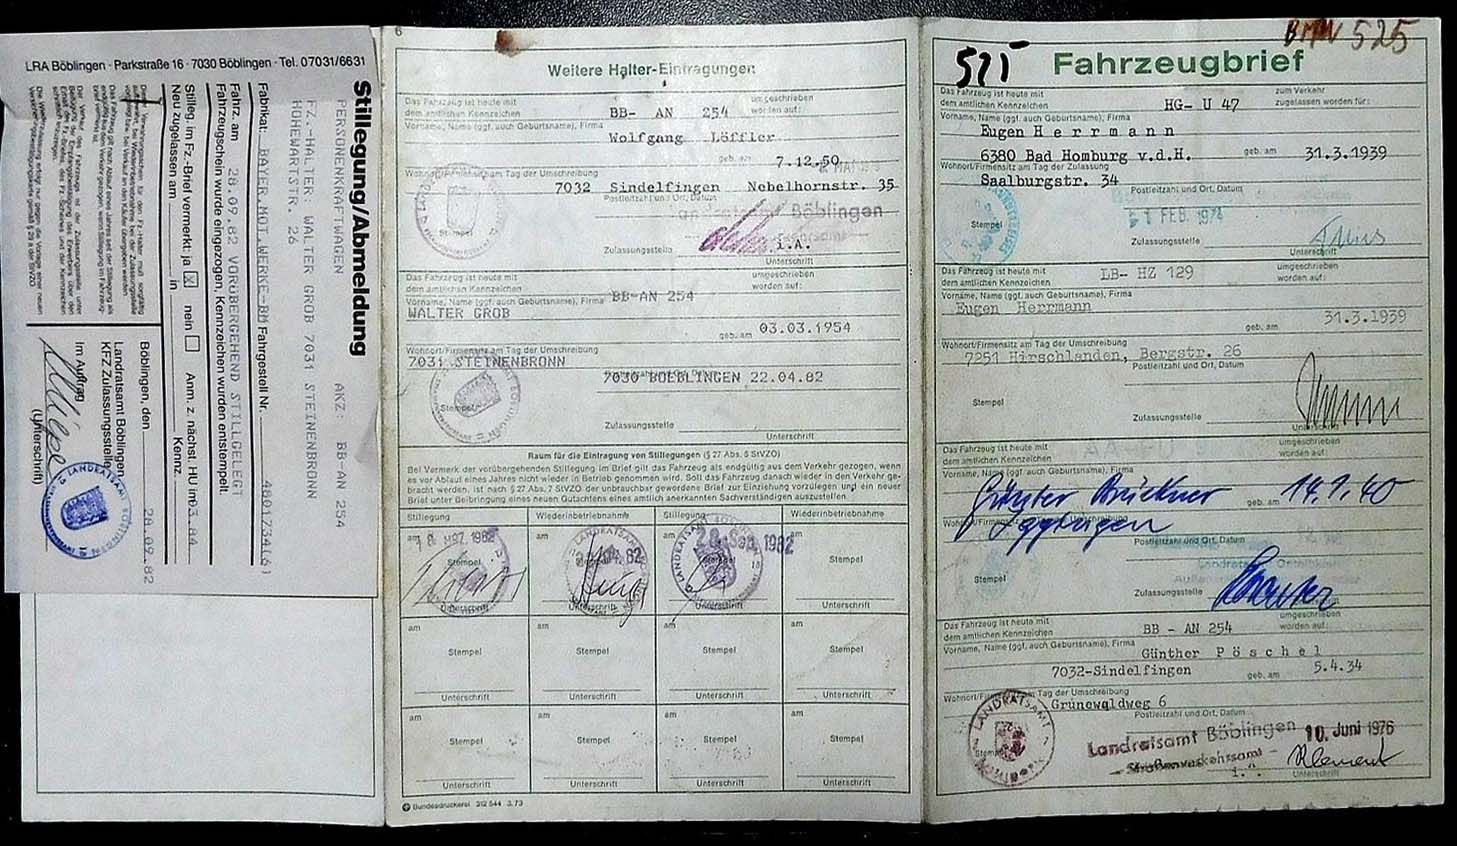 LRA Böblingen · Parkstraße 16 · 7030 Böblingen · Tel. 07031/6631
Stillegung/Abmeldung
PERSONENKRAFTWAGEN AKZ: BB-AN 254
FZ.-HALTER: WALTER GROB 7031 STEINENBRONN
HOHEWARTSTR. 26
Fabrikat: BAYER.MOT.WERKE-BM Fahrgestell Nr. 4801734(6)
Fahrz. am 28.09.82 VORÜBERGEHEND STILLGELEGT
Fahrzeugschein wurde eingezogen, Kennzeichen wurden entstempelt.
Stilleg. im Fz.-Brief vermerkt: ja X nein Anm. z. nächst. HU im 03.84
Neu zugelassen am in Kennz.
Böblingen, den 28.09.82
Landratsamt Böblingen
KFZ Zulassungsstelle
Im Auftrag
(Unterschrift)
LANDRATSAMT BÖBLINGEN
6
Weitere Halter-Eintragungen
Das Fahrzeug ist heute mit umgeschrieben
dem amtlichen Kennzeichen BB- AN 254 worden auf:
Vorname, Name (ggf. auch Geburtsname), Firma
Wolfgang Löffler
geb. am 7.12.50
Wohnort/Firmensitz am Tag der Umschreibung
7032 Sindelfingen Nebelhornstr. 35
Postleitzahl und Ort, Datum
Landratsamt Böblingen
Stempel
Zulassungsstelle i.A.
Unterschrift
Das Fahrzeug ist heute mit umgeschrieben
dem amtlichen Kennzeichen worden auf:
Vorname, Name (ggf. auch Geburtsname), Firma BB-AN 254
WALTER GROB
geb. am 03.03.1954
Wohnort/Firmensitz am Tag der Umschreibung
7031 STEINENBRONN
7030 BOEBLINGEN 22.04.82
Stempel
Zulassungsstelle
Unterschrift
Raum für die Eintragung von Stillegungen (§ 27 Abs. 5 StVZO)
Bei Vermerk der vorübergehenden Stillegung im Brief gilt das Fahrzeug als endgültig aus dem Verkehr gezogen, wenn
es vor Ablauf eines Jahres nicht wieder in Betrieb genommen wird. Soll das Fahrzeug danach wieder in den Verkehr ge-
bracht werden, ist nach § 27 Abs. 7 StVZO der unbrauchbar gewordene Brief zur Einziehung vorzulegen und ein neuer
Brief unter Beibringung eines neuen Gutachtens eines amtlich anerkannten Sachverständigen auszustellen.
Stillegung Wiederinbetriebnahme Stillegung Wiederinbetriebnahme
am am am am
28. Sep. 1982
Stempel Stempel Stempel Stempel
Unterschrift Unterschrift Unterschrift Unterschrift
am am am am
Stempel Stempel Stempel Stempel
Unterschrift Unterschrift Unterschrift Unterschrift
am am am am
Stempel Stempel Stempel Stempel
Unterschrift Unterschrift Unterschrift Unterschrift
Bundesdruckerei 312 544 3.73
BMW 525
525
Fahrzeugbrief
Das Fahrzeug ist heute mit zum Verkehr
dem amtlichen Kennzeichen HG- U 47 zugelassen worden für:
Vorname, Name (ggf. auch Geburtsname), Firma
Eugen Herrmann
6380 Bad Homburg v.d.H. geb. am 31.3.1939
Wohnort/Firmensitz am Tag der Zulassung
Saalburgstr. 34
Postleitzahl und Ort, Datum
FEB. 1974
Stempel
Zulassungsstelle
Unterschrift
Das Fahrzeug ist heute mit umgeschrieben
dem amtlichen Kennzeichen LB- HZ 129 worden auf:
Vorname, Name (ggf. auch Geburtsname), Firma
Eugen Herrmann
geb. am 31.3.1939
Wohnort/Firmensitz am Tag der Umschreibung
7251 Hirschlanden, Bergstr. 26
Postleitzahl und Ort, Datum
Stempel
Zulassungsstelle
Das Fahrzeug ist heute mit umgeschrieben
dem amtlichen Kennzeichen worden auf:
Vorname, Name (ggf. auch Geburtsname), Firma
Günter Brückner geb. am 14.1.40
Postleitzahl und Ort, Datum
Stempel
Zulassungsstelle
Das Fahrzeug ist heute mit umgeschrieben
dem amtlichen Kennzeichen BB - AN 254 worden auf:
Vorname, Name (ggf. auch Geburtsname), Firma
Günther Pöschel
7032-Sindelfingen geb. am 5.4.34
Wohnort/Firmensitz am Tag der Umschreibung
Grünewaldweg 6
Postleitzahl und Ort, Datum
LANDRATSAMT
Landratsamt Böblingen 10. Juni 1976
- Straßenverkehrsamt -
Klement
Unterschrift